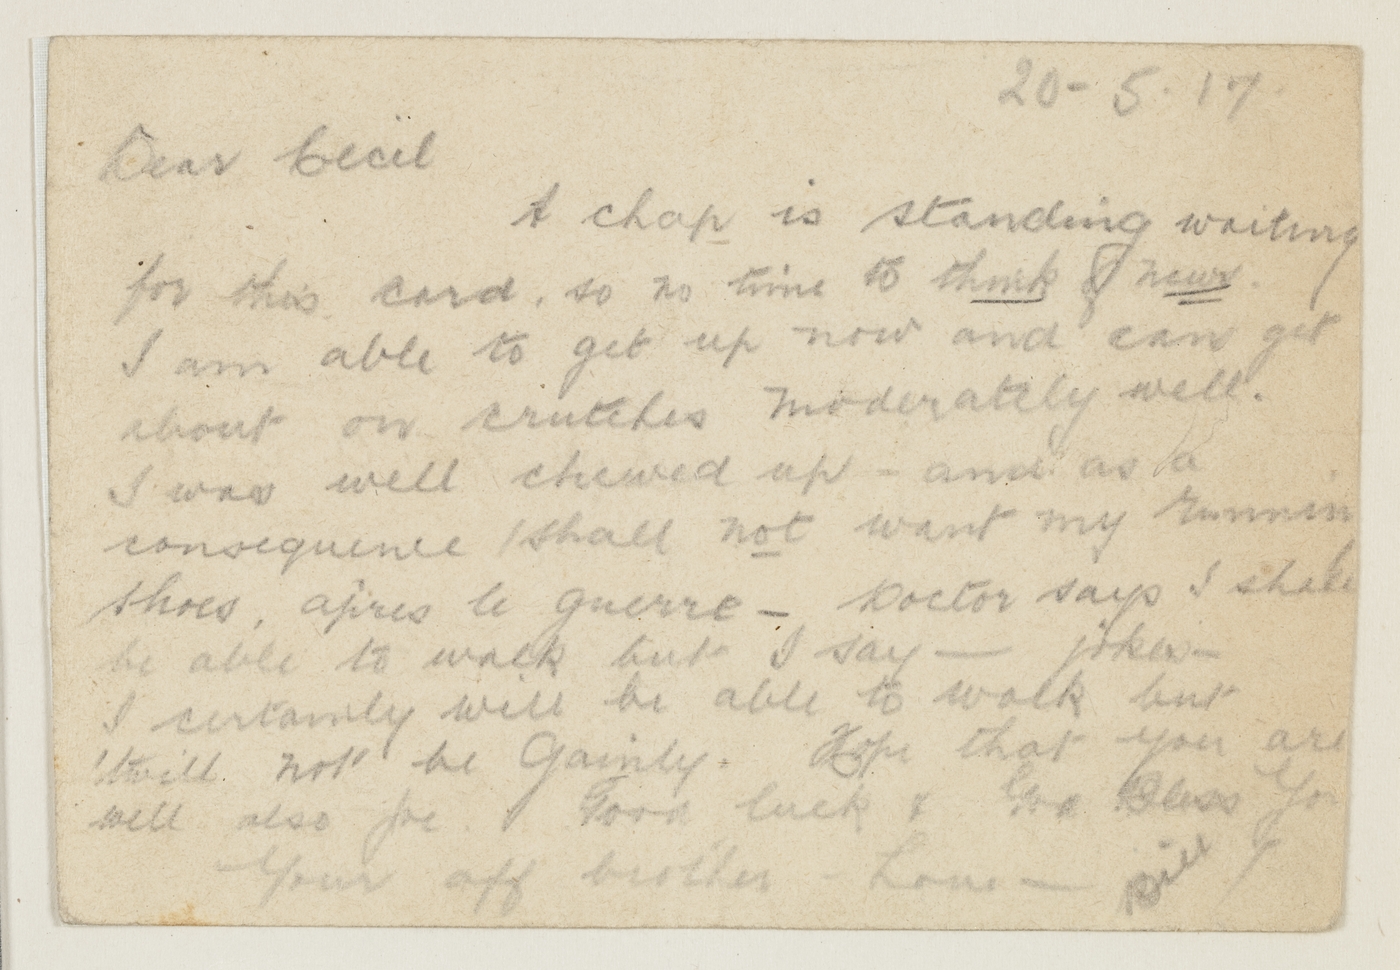 20-5.17
Dear Cecil
A chap is standing waiting
for this card, so no time to think of news.
I am able to get up now and can get
about on crutches moderately well.
I was well chewed up - and as a
consequence I shall not want my runnin
shoes, apres le guerre - Doctor says I shall
be able to walk but I say —
I certainly will be able to walk but
'twill not be Gainly. Hope that you are
well also Joe. Good luck & God Bless You
Your aff brother - Love — Bill